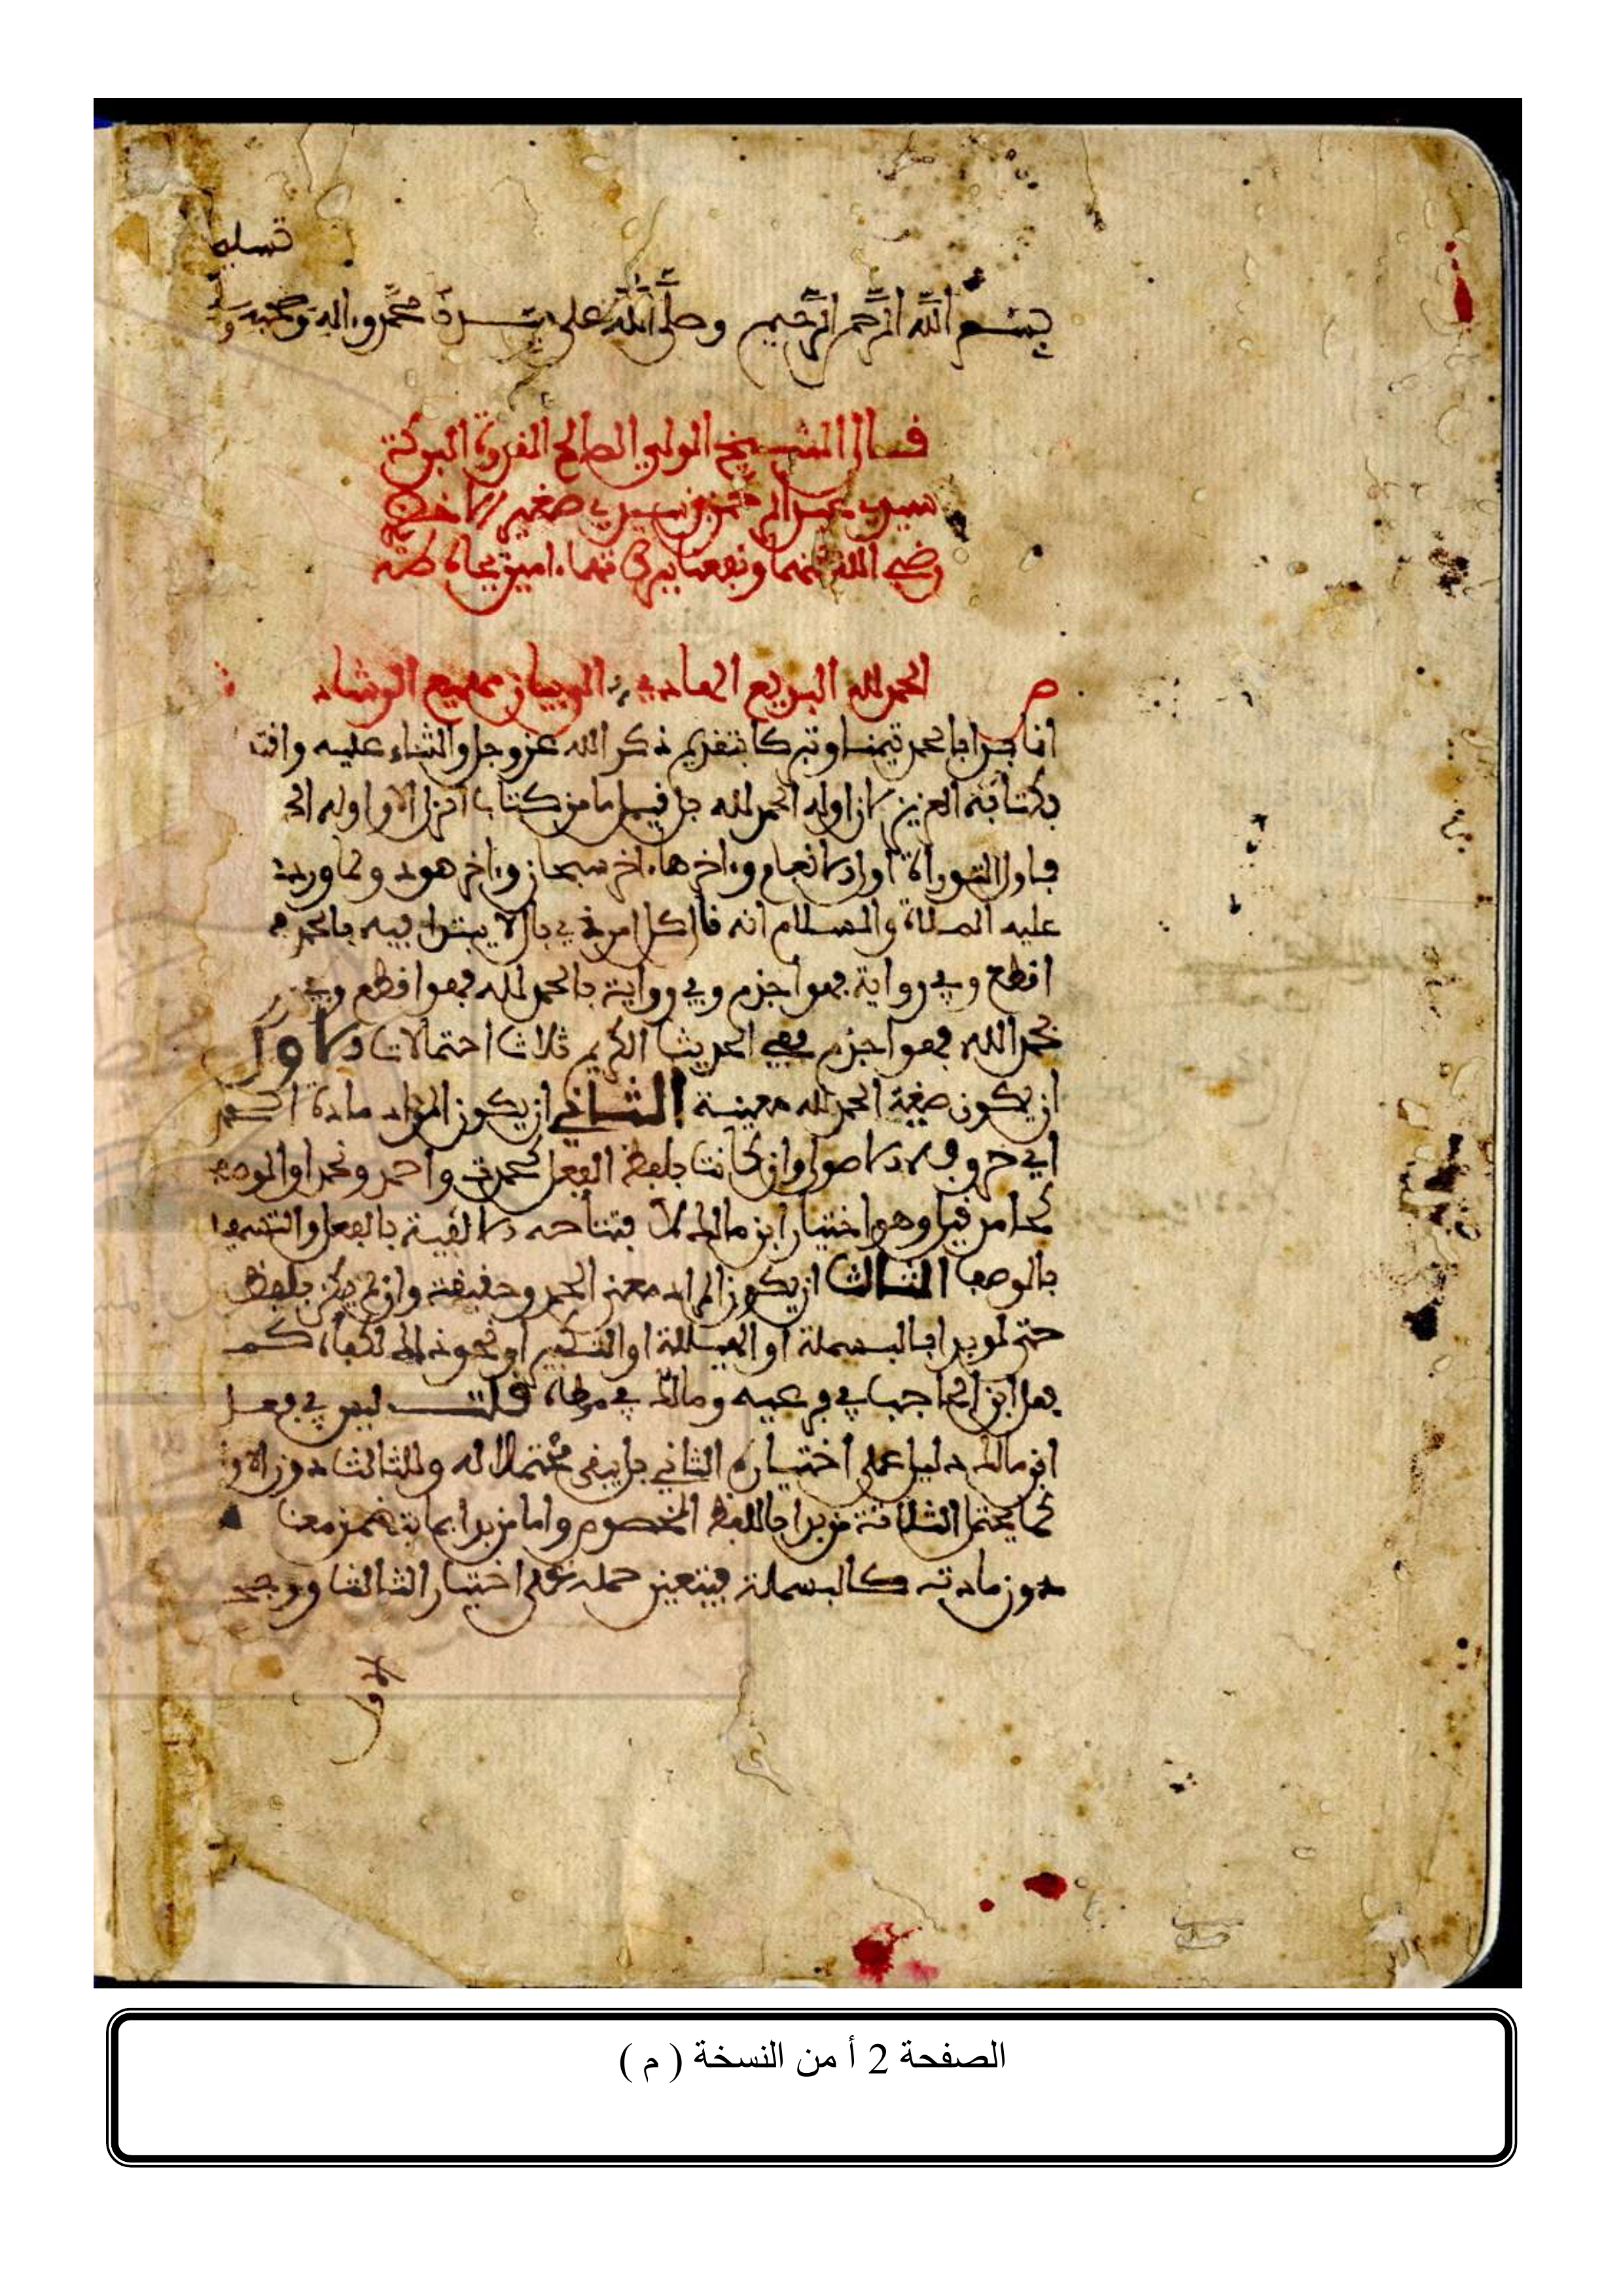 تسليما
بسم الله الرحمن الرحيم وصلى الله على سيدنا محمد وءاله وصحبه وسلم
قال الشيخ الولي الصالح القدوة البركة
سيدي عبد الرحمن بن سيدي صغير الاخضري
رضي الله عنهما ونفعنا ببركاتهما ءامين بجاه طه
م الحمد لله البديع الهادي الى بيان مهيع الرشاد
انما بدا بالحمد تيمنا وتبركا بتقديم ذكر الله عز وجل والثناء عليه واقتدا
بكتابه العزيز لان اوله الحمد لله بل قيل ما من كتاب انزل الا واوله الحمد
فاول التوراة اول الانعام وءاخرها ءاخر سبحان وءاخر هود ولما ورد
عليه الصلاة والسلام انه قال كل امر ذي بال لا يبتدا فيه بالحمد
اقطع وفي رواية فهو اجذم وفي رواية بالحمد لله فهو اقطع وفي
بحمد الله فهو اجذم ففي الحديث الكريم ثلاث احتمالات الاول
ان يكون صغية الحمد لله معينة الثاني ان يكون المراد مادة الحمد
اي حروفه الاصول وان كانت بلفظ الفعل كحمدت واحمد ونحمد او الوصف
كحامد قيل وهو اختيار ابن مالك لافتتاحه الالفية بالفعل والتسهيل
بالوصف الثالث ان يكون المراد معنى الحمد وحقيقته وان لم يكن بلفظه
حتى لو بدا بالبسملة او الهيللة او التكبير او نحو ذلك لكفاه كما
فعل ابن الحاجب في فرعيه ومالك في موطاه قلت ليس في فعل
ابن مالك دليل على اختياره الثاني بل يبقى محتملا له وللثالث دون الاول
كما يحتمل الثلاثة من بدا باللفظ المخصوص واما من بدا بما يتضمن معناه
دون مادته كالبسملة فيتعين حمله على اختيار الثالث ووجه
الاول
الصفحة 2 أ من النسخة ( م )